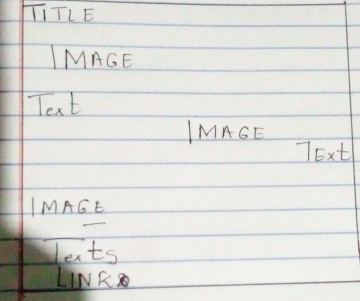 TITLE
IMAGE
Text
IMAGE
TExt
IMAGE
Texts
LINK